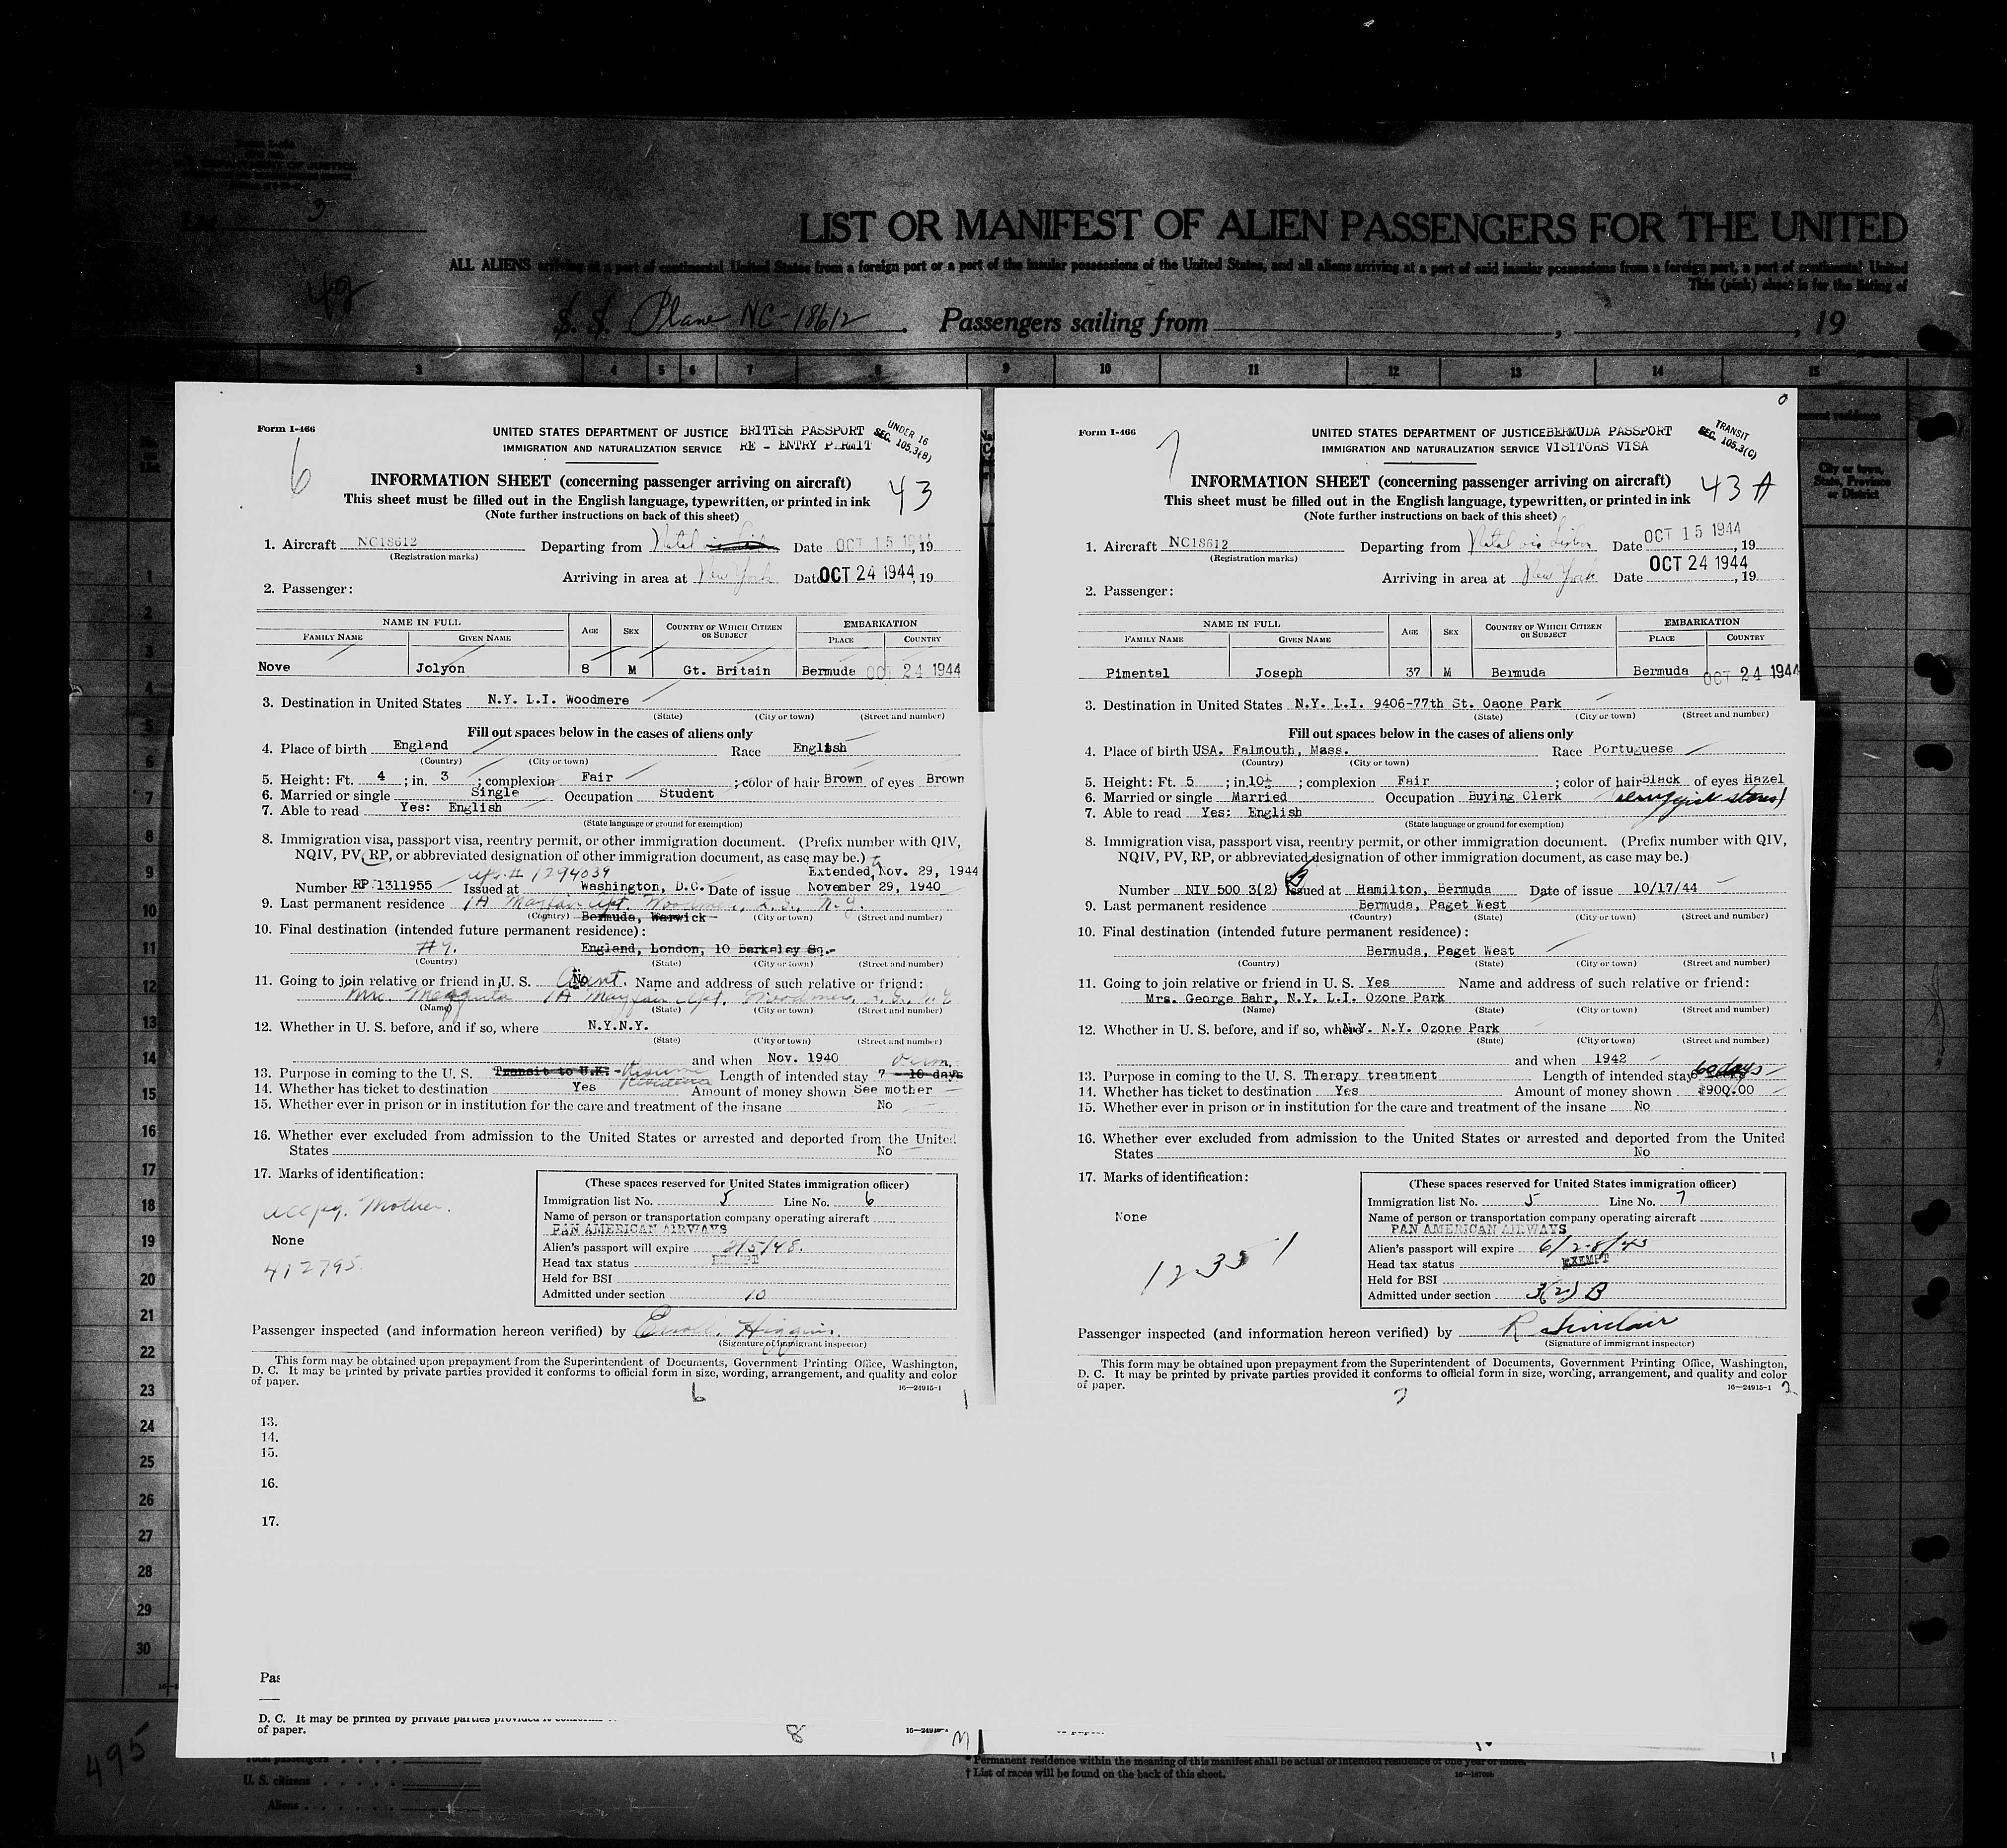 LIST OR MANIFEST OF ALIEN PASSENGERS FOR THE UNITED
ALL ALIENS arriving at a port of continental United States from a foreign port or a port of the insular possessions of the United States, and all aliens arriving at a port of said insular possessions from a foreign port, a port of continental United
This (pink) sheet is for the listing of
3
49
S. S. Plane NC-18612 . Passengers sailing from , , 19
3 4 5 6 7 8 9 10 11 12 13 14 15
Form I-466
6
UNITED STATES DEPARTMENT OF JUSTICE BRITISH PASSPORT
IMMIGRATION AND NATURALIZATION SERVICE RE - ENTRY PERMIT
UNDER 16
SEC. 105.3(B)
INFORMATION SHEET (concerning passenger arriving on aircraft)
43
This sheet must be filled out in the English language, typewritten, or printed in ink
(Note further instructions on back of this sheet)
1. Aircraft NC18612 Departing from Natal Date OCT 15 1944, 19
(Registration marks)
Arriving in area at New York Date OCT 24 1944, 19
2. Passenger:
NAME IN FULL AGE SEX COUNTRY OF WHICH CITIZEN OR SUBJECT EMBARKATION
FAMILY NAME GIVEN NAME PLACE COUNTRY
Nove Jolyon 8 M Gt. Britain Bermuda OCT 24 1944
3. Destination in United States N.Y. L.I. Woodmere
(State) (City or town) (Street and number)
Fill out spaces below in the cases of aliens only
4. Place of birth England Race English
(Country) (City or town)
5. Height: Ft. 4 ; in. 3 ; complexion Fair ; color of hair Brown of eyes Brown
6. Married or single Single Occupation Student
7. Able to read Yes: English
(State language or ground for exemption)
8. Immigration visa, passport visa, reentry permit, or other immigration document. (Prefix number with QIV,
NQIV, PV, RP, or abbreviated designation of other immigration document, as case may be.)
# 1294039 Extended to Nov. 29, 1944
Number RP 1311955 Issued at Washington, D.C. Date of issue November 29, 1940
9. Last permanent residence 1A Mayfair Apt. Woodmere, L.I., N.Y.
(Country) Bermuda, Warwick (City or town) (Street and number)
10. Final destination (intended future permanent residence):
#9. England, London, 10 Berkeley Sq.
(Country) (State) (City or town) (Street and number)
11. Going to join relative or friend in U. S. No Aunt. Name and address of such relative or friend:
Mrs. 1A Mayfair Apt. Woodmere, L.I., N.Y.
(Name) (State) (City or town) (Street and number)
12. Whether in U. S. before, and if so, where N.Y.N.Y.
(State) (City or town) (Street and number)
and when Nov. 1940
13. Purpose in coming to the U. S. Transit to U.K. - Resume Residence Length of intended stay 7 - 10 days Perm.
14. Whether has ticket to destination Yes Amount of money shown See mother
15. Whether ever in prison or in institution for the care and treatment of the insane No
16. Whether ever excluded from admission to the United States or arrested and deported from the United
States No
17. Marks of identification:
accpg. Mother.
None
412795
(These spaces reserved for United States immigration officer)
Immigration list No. 5 Line No. 6
Name of person or transportation company operating aircraft
PAN AMERICAN AIRWAYS
Alien's passport will expire 2/5/48.
Head tax status EXEMPT
Held for BSI
Admitted under section 10
Passenger inspected (and information hereon verified) by Higgins
(Signature of immigrant inspector)
This form may be obtained upon prepayment from the Superintendent of Documents, Government Printing Office, Washington,
D. C. It may be printed by private parties provided it conforms to official form in size, wording, arrangement, and quality and color
of paper. 16—24915-1
6 1
Form I-466
7
UNITED STATES DEPARTMENT OF JUSTICE BERMUDA PASSPORT
IMMIGRATION AND NATURALIZATION SERVICE VISITORS VISA
TRANSIT
SEC. 105.3(C)
INFORMATION SHEET (concerning passenger arriving on aircraft)
43 A
This sheet must be filled out in the English language, typewritten, or printed in ink
(Note further instructions on back of this sheet)
1. Aircraft NC18612 Departing from Natal via Lisbon Date OCT 15 1944, 19
(Registration marks)
Arriving in area at New York Date OCT 24 1944, 19
2. Passenger:
NAME IN FULL AGE SEX COUNTRY OF WHICH CITIZEN OR SUBJECT EMBARKATION
FAMILY NAME GIVEN NAME PLACE COUNTRY
Pimental Joseph 37 M Bermuda Bermuda OCT 24 1944
3. Destination in United States N.Y. L.I. 9406-77th St. Oaone Park
(State) (City or town) (Street and number)
Fill out spaces below in the cases of aliens only
4. Place of birth USA. Falmouth, Mass. Race Portuguese
(Country) (City or town)
5. Height: Ft. 5 ; in. 10½ ; complexion Fair ; color of hair Black of eyes Hazel
6. Married or single Married Occupation Buying Clerk
7. Able to read Yes: English
(State language or ground for exemption)
8. Immigration visa, passport visa, reentry permit, or other immigration document. (Prefix number with QIV,
NQIV, PV, RP, or abbreviated designation of other immigration document, as case may be.)
Number NIV 500 3(2) B Issued at Hamilton, Bermuda Date of issue 10/17/44
9. Last permanent residence Bermuda, Paget West
(Country) (State) (City or town) (Street and number)
10. Final destination (intended future permanent residence):
Bermuda, Paget West
(Country) (State) (City or town) (Street and number)
11. Going to join relative or friend in U. S. Yes Name and address of such relative or friend:
Mrs. George Bahr, N.Y. L.I. Ozone Park
(Name) (State) (City or town) (Street and number)
12. Whether in U. S. before, and if so, where N.Y. N.Y. Ozone Park
(State) (City or town) (Street and number)
and when 1942
13. Purpose in coming to the U. S. Therapy treatment Length of intended stay 60 days
14. Whether has ticket to destination Yes Amount of money shown $900.00
15. Whether ever in prison or in institution for the care and treatment of the insane No
16. Whether ever excluded from admission to the United States or arrested and deported from the United
States No
17. Marks of identification:
None
12351
(These spaces reserved for United States immigration officer)
Immigration list No. 5 Line No. 7
Name of person or transportation company operating aircraft
PAN AMERICAN AIRWAYS
Alien's passport will expire 6/28/45
Head tax status EXEMPT
Held for BSI
Admitted under section 3(2) B
Passenger inspected (and information hereon verified) by R Sinclair
(Signature of immigrant inspector)
This form may be obtained upon prepayment from the Superintendent of Documents, Government Printing Office, Washington,
D. C. It may be printed by private parties provided it conforms to official form in size, wording, arrangement, and quality and color
of paper. 16—24915-1
13.
14.
15.
16.
17.
D. C. It may be printed by private parties
of paper. 8
1
2
3
4
5
6
7
8
9
10
11
12
13
14
15
16
17
18
19
20
21
22
23
24
25
26
27
28
29
30
City or town,
State, Province
or District
495
Total passengers
U. S. citizens
Aliens
* Permanent residence within the meaning of this manifest shall be actual or intended residence of one year or more.
† List of races will be found on the back of this sheet.